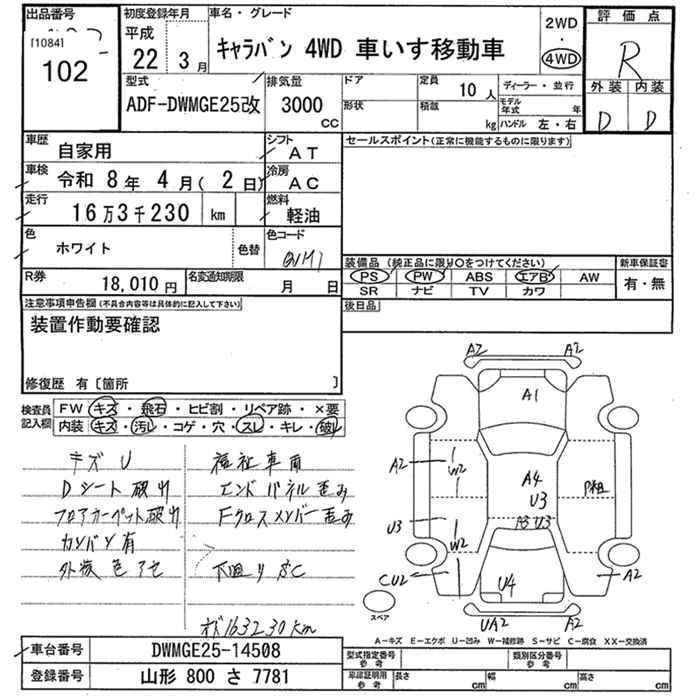 出品番号
[1084]
102
初度登録年月
平成
22年 3月
車名・グレード
キャラバン 4WD 車いす移動車
2WD
・
4WD
評価点
R
外装 内装
D D
型式
ADF-DWMGE25改
排気量
3000
CC
ドア
形状
定員
10人
積載
kg
ディーラー・並行
モデル年式 年
ハンドル 左・右
車歴
自家用
シフト
AT
車検
令和 8年 4月( 2日)
冷房
AC
走行
16万3千230 km
燃料
軽油
色
ホワイト
色替
色コード
QM1
R券
18,010円
名変通知期限
月 日
セールスポイント(正常に機能するものに限ります)
装備品(純正品に限り○をつけてください)
PS PW ABS エアB AW
SR ナビ TV カワ
新車保証書
有・無
後日品
注意事項申告欄(不具合内容等は具体的に記入して下さい)
装置作動要確認
修復歴 有〔箇所 〕
検査員記入欄
FW キズ・飛石・ヒビ割・リペア跡・×要
内装 キズ・汚レ・コゲ・穴・スレ・キレ・破レ
キズ U
Dシート破れ
フロアカーペット破れ
カンバン有
外装色アセ
福祉車両
エンドパネル歪み
Fクロスメンバー歪み
下廻りSC
メーター163230km
A2 A2
A1
A2
W2
A4
U3
P組
U3
W2
A3 U3
CU2
U4
A2
UA2 A2
スペア
A-キズ E-エクボ U-凹み W-補修跡 S-サビ C-腐食 XX-交換済
車台番号
DWMGE25-14508
登録番号
山形 800 さ 7781
型式指定番号
参考
類別区分番号
参考
車庫証明用
参考
長さ cm
幅 cm
高さ cm